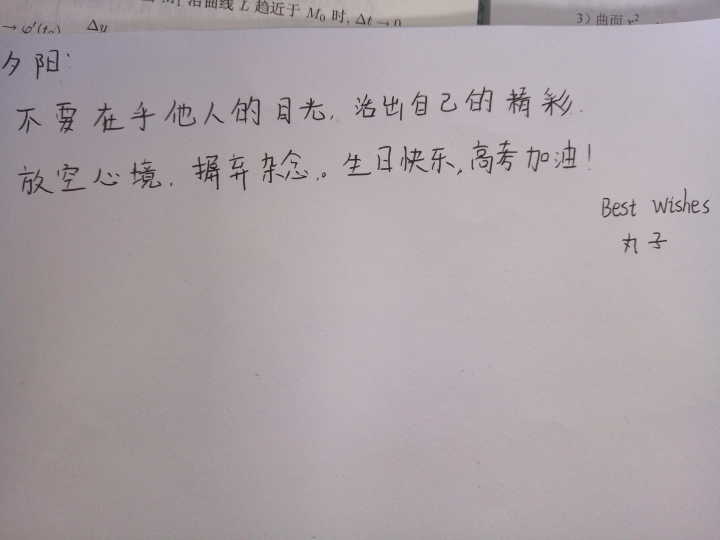 沿曲线 L 趋近于 M₀ 时, Δt → 0
3) 曲面 x²
→ φ'(t₀) Δy
夕阳:
不要在乎他人的目光, 活出自己的精彩.
放空心境, 摒弃杂念。生日快乐, 高考加油!
Best Wishes
丸子